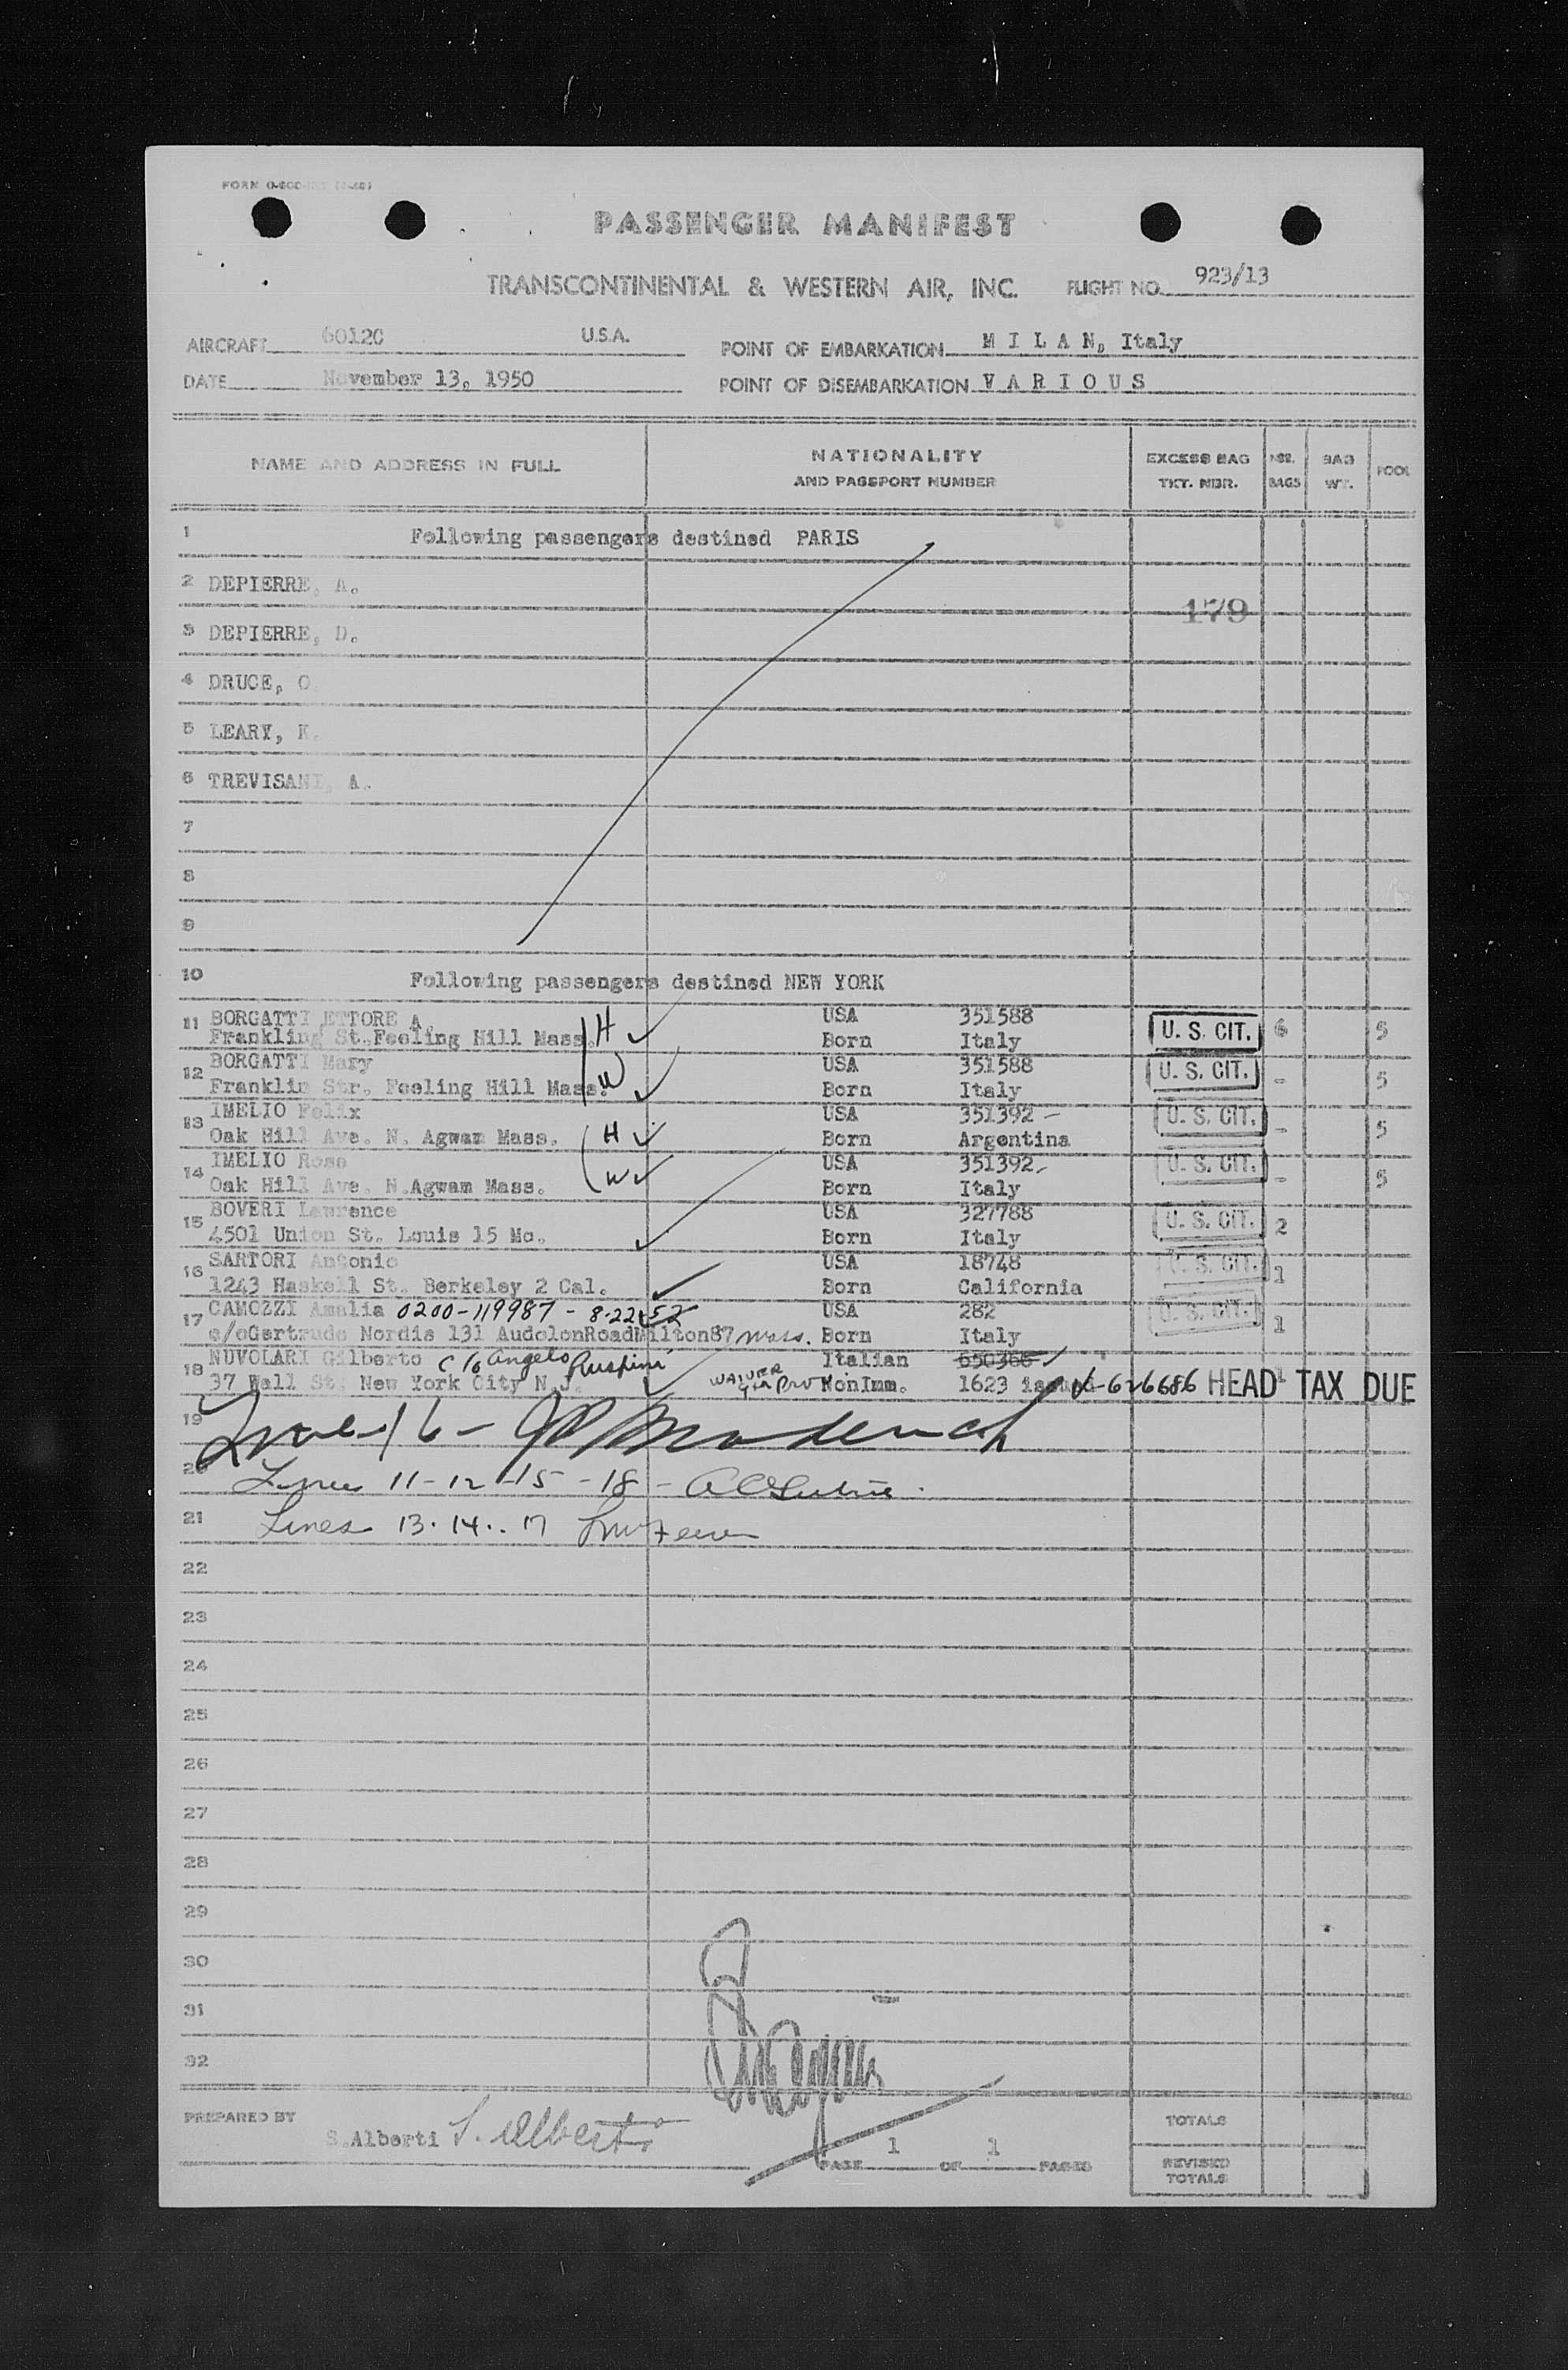 PASSENGER MANIFEST
TRANSCONTINENTAL & WESTERN AIR, INC. FLIGHT NO. 923/13
AIRCRAFT 6012C U.S.A. POINT OF EMBARKATION M I L A N, Italy
DATE November 13, 1950 POINT OF DISEMBARKATION V A R I O U S
NAME AND ADDRESS IN FULL NATIONALITY AND PASSPORT NUMBER EXCESS BAG TKT. NBR. NBR. BAGS BAG WT. POOL
1 Following passengers destined PARIS
2 DEPIERRE, A.
179
3 DEPIERRE, D.
4 DRUCE, O.
5 LEARY, K.
6 TREVISANI, A.
7
8
9
10 Following passengers destined NEW YORK
11 BORGATTI ETTORE A. USA 351588
Frankling St.Feeling Hill Mass. H Born Italy U. S. CIT. 6 5
12 BORGATTI Mary USA 351588
Franklin Str. Feeling Hill Mass. W Born Italy U. S. CIT. - 5
13 IMELIO Felix USA 351392 -
Oak Hill Ave. N. Agwam Mass. H Born Argentina U. S. CIT. - 5
14 IMELIO Rose USA 351392 -
Oak Hill Ave. N.Agwam Mass. W Born Italy U. S. CIT. - 5
15 BOVERI Lawrence USA 327788
4501 Union St. Louis 15 Mo. Born Italy U. S. CIT. 2
16 SARTORI Antonio USA 18748
1243 Haskell St. Berkeley 2 Cal. Born California U. S. CIT. 1
17 CAMOZZI Amalia 0200-119987 - 8-22-52 USA 282
c/oGertrude Nordis 131 AudolonRoadMilton87 Mass. Born Italy U. S. CIT. 1
18 NUVOLARI Gilberto c/o Angelo Ruspini Italian 650366
37 Wall St. New York City N.J. WAIVER NonImm. 1623 issued V-626686 1 HEAD TAX DUE
19 Line 16 -
20 Lines 11-12-15-18 -
21 Lines 13.14..17
22
23
24
25
26
27
28
29
30
31
32
PREPARED BY S.Alberti S. Alberti
PAGE 1 OF 1 PAGES
TOTALS
REVISED TOTALS